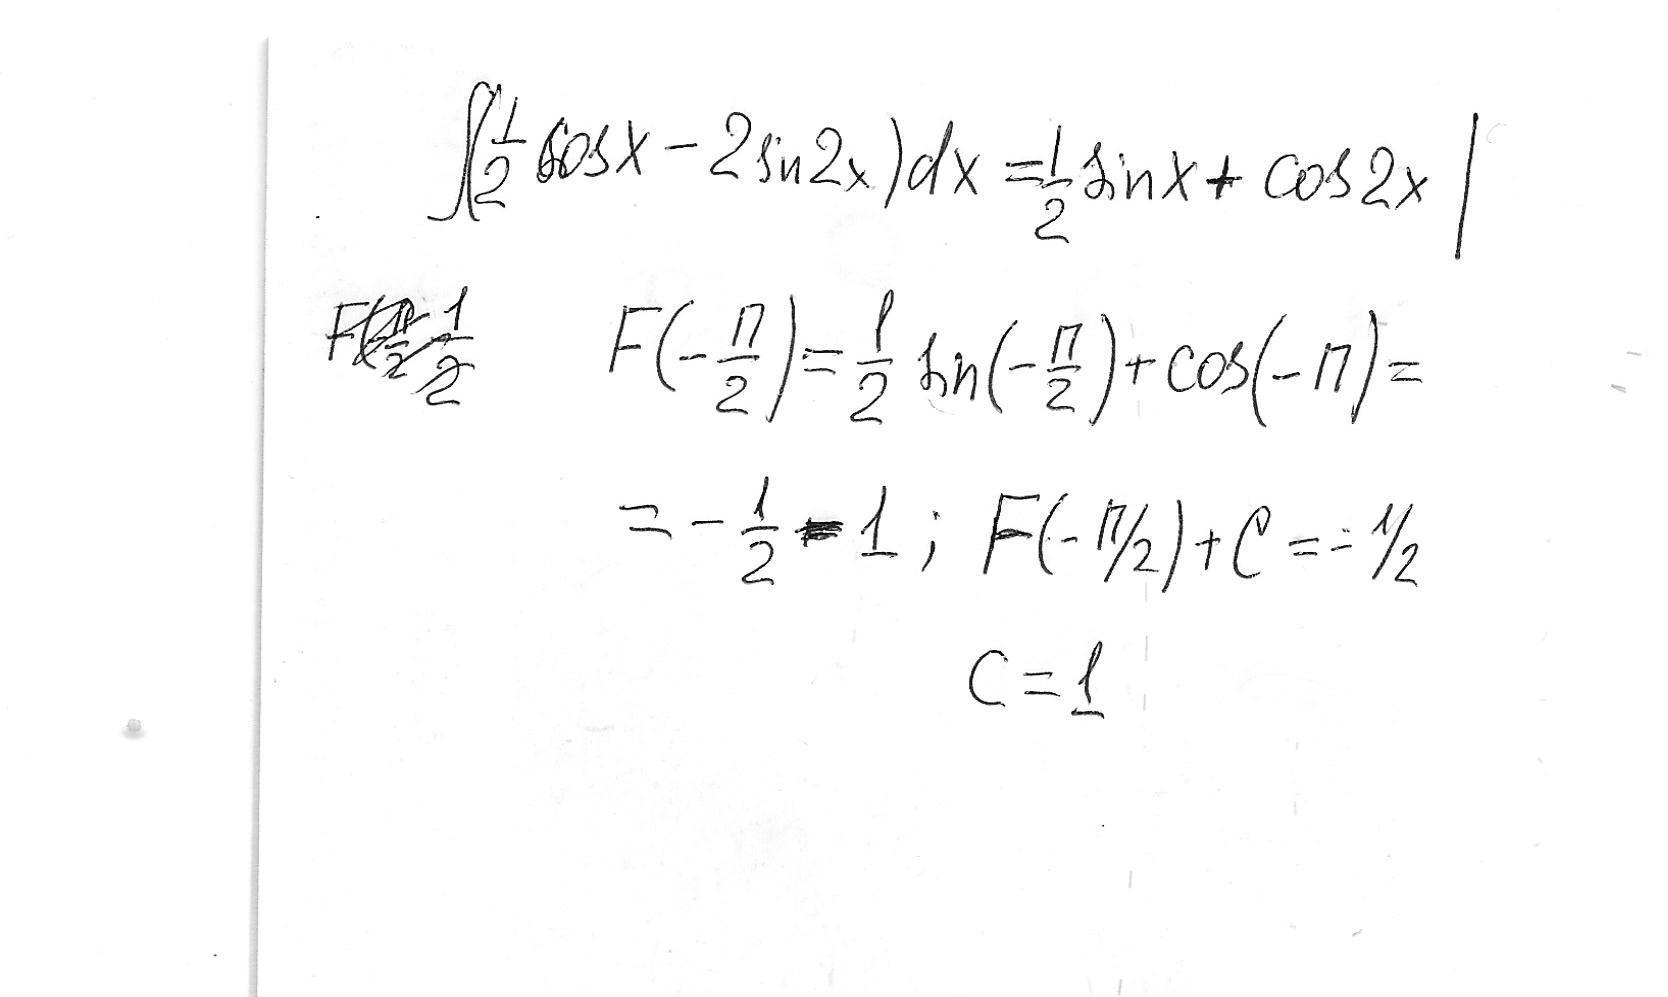 ∫(1/2 cosx - 2sin2x)dx = 1/2 sinx + cos2x |
F(-π/2) = 1/2 sin(-π/2) + cos(-π) =
= -1/2 - 1; F(-π/2) + C = -1/2
C = 1